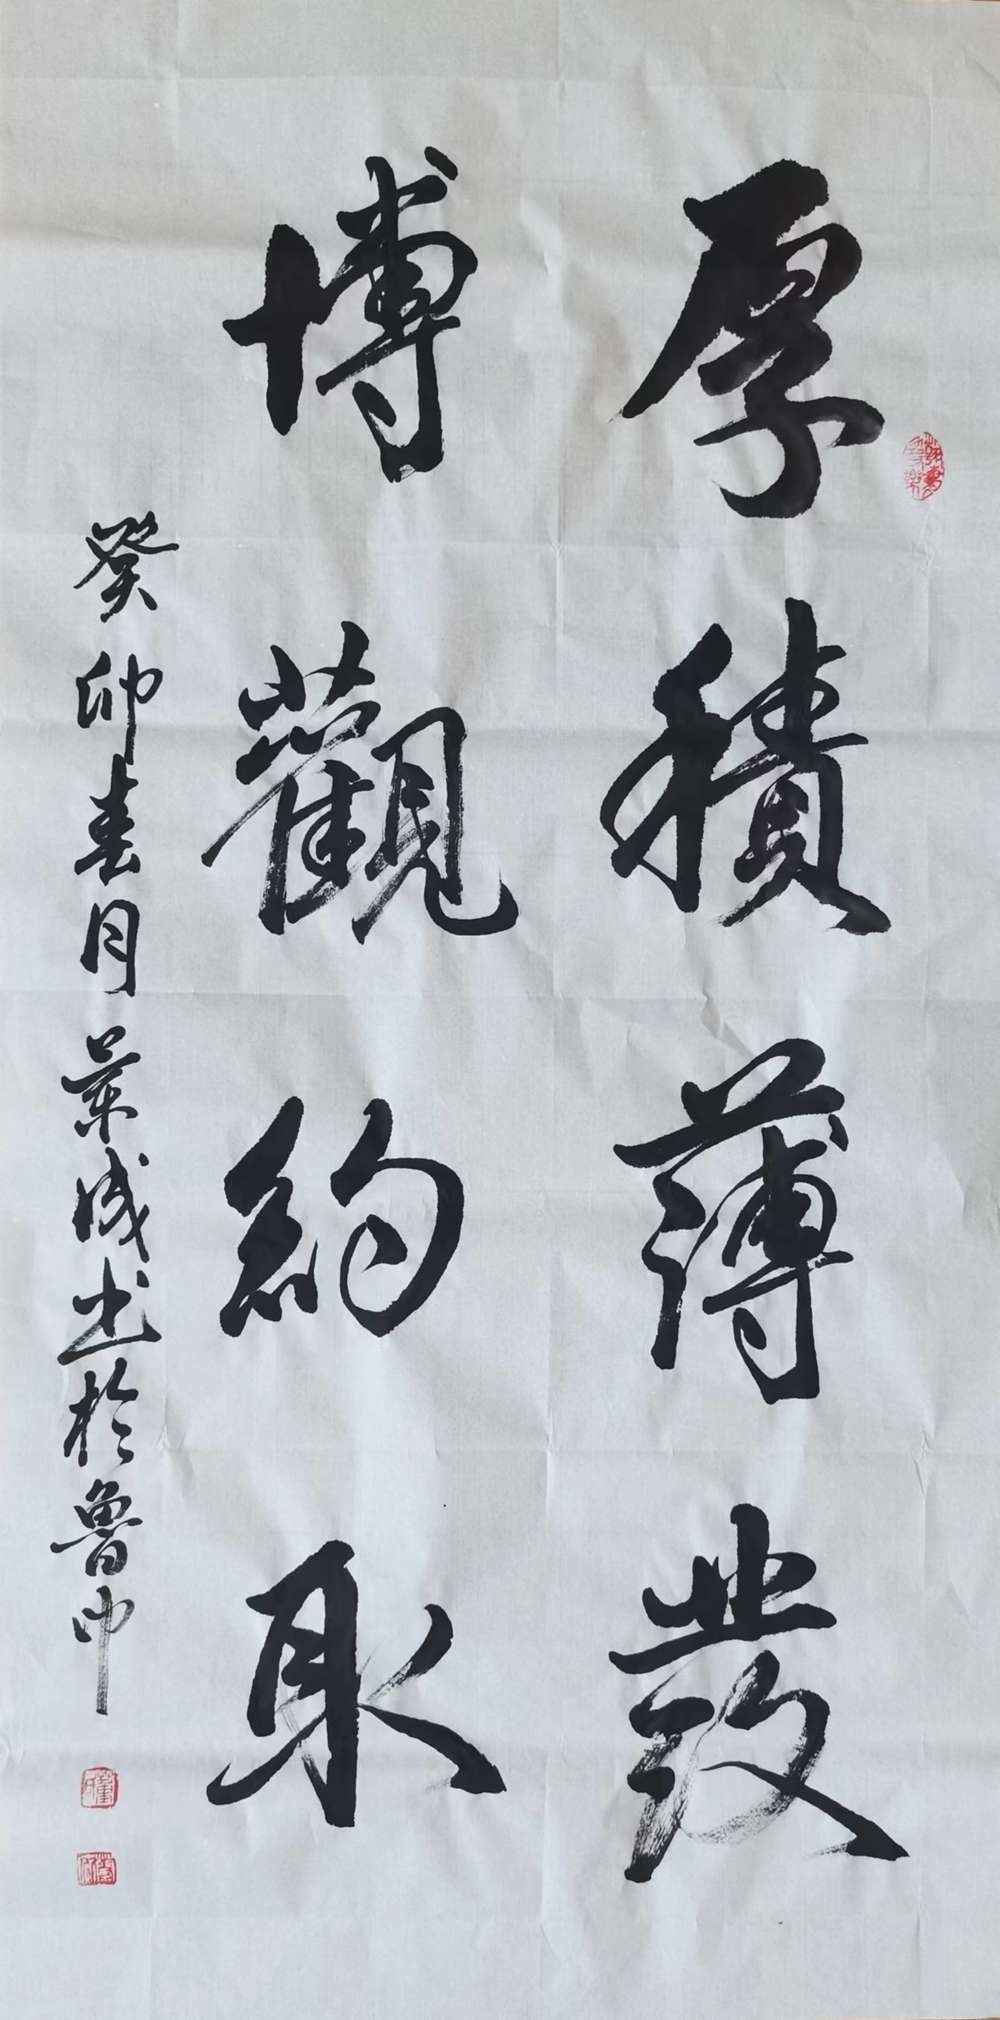 厚積薄發
博觀約取
癸卯春月業成书於魯中